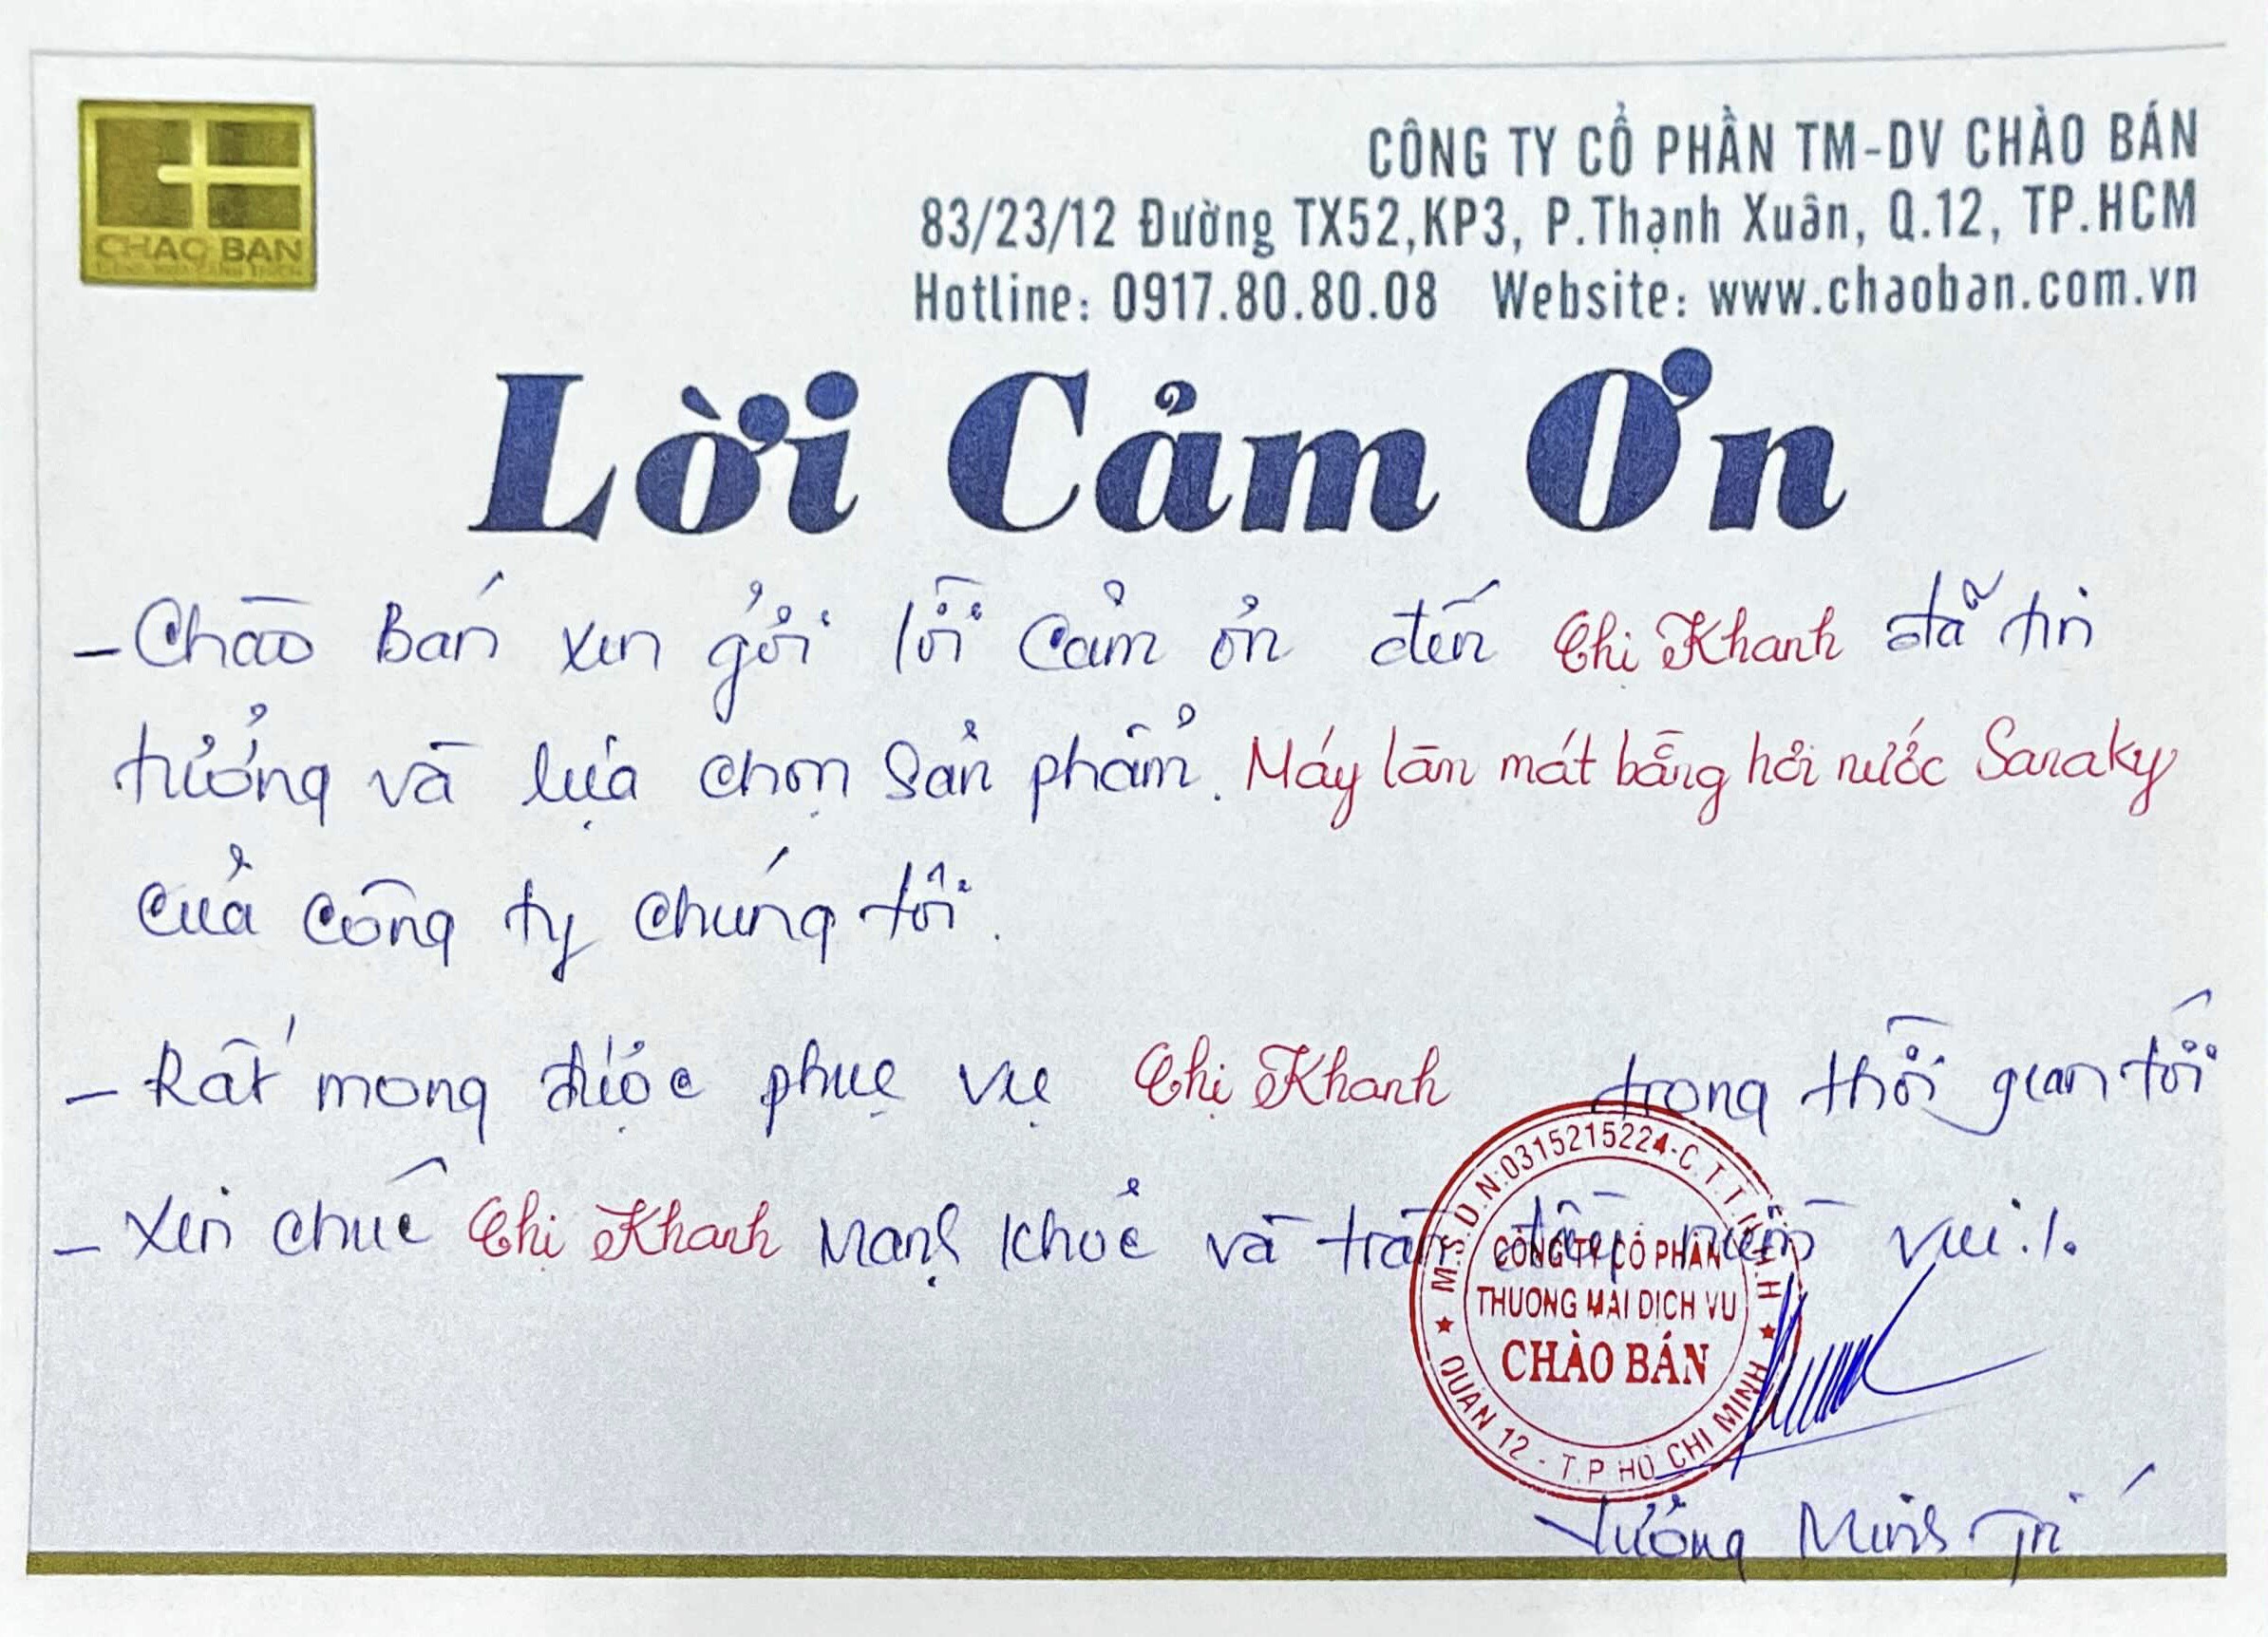 CHAO BAN
CÔNG TY CỔ PHẦN TM-DV CHÀO BÁN
83/23/12 Đường TX52,KP3, P.Thạnh Xuân, Q.12, TP.HCM
Hotline: 0917.80.80.08 Website: www.chaoban.com.vn
Lời Cảm Ơn
- Chào Bán xin gửi lời cảm ơn đến Chị Khanh đã tin
tưởng và lựa chọn sản phẩm. Máy làm mát bằng hơi nước Saraky
của công ty chúng tôi.
- Rất mong được phục vụ Chị Khanh trong thời gian tới
- Xin chúc Chị Khanh mạnh khoẻ và tràn đầy niềm vui./.
M.S.D.N:0315215224-C.T.T.N.H.H
CÔNG TY CỔ PHẦN
THƯƠNG MẠI DỊCH VỤ
CHÀO BÁN
QUẬN 12 - T.P HỒ CHÍ MINH
Tưởng Minh Trí